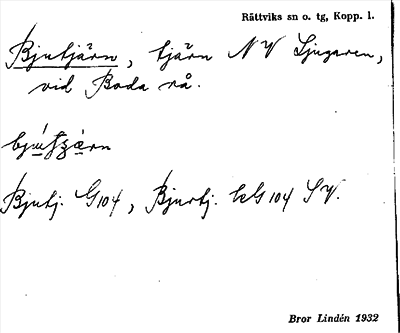 Rättviks sn o. tg, Kopp. l.
Bjutjärn, tjärn NV Ljugaren,
vid Boda rå.
Bjutj. G104, Bjurtj. 104 SV.
Bror Lindén 1932